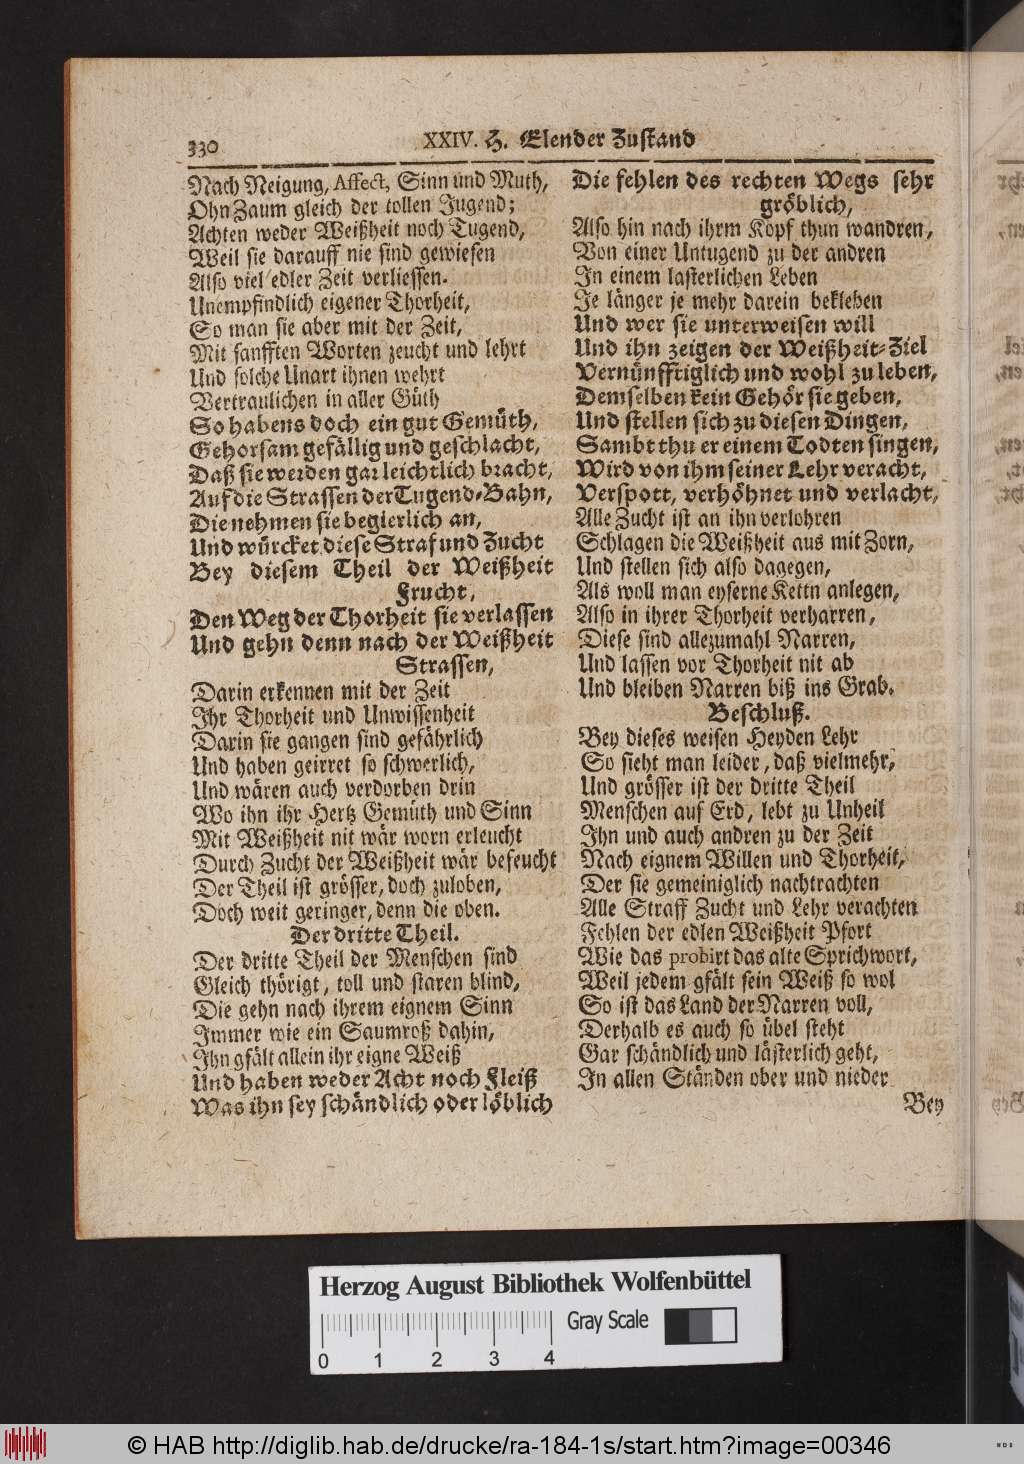 330
XXIV. H. Elender Zustand
Nach Neigung, Affect, Sinn und Muth,
Ohn Zaum gleich der tollen Jugend;
Achten weder Weißheit noch Tugend,
Weil sie darauff nie sind gewiesen
Also viel edler Zeit verliessen.
Unempfindlich eigener Thorheit,
So man sie aber mit der Zeit,
Mit sanfften Worten zeucht und lehrt
Und solche Unart ihnen wehrt
Vertraulichen in aller Güth
So habens doch ein gut Gemüth,
Gehorsam gefällig und geschlacht,
Daß sie werden gar leichtlich bracht,
Auf die Strassen der Tugend-Bahn,
Die nehmen sie begierlich an,
Und würcket diese Straf und Zucht
Bey diesem Theil der Weißheit
Frucht,
Den Weg der Thorheit sie verlassen
Und gehn denn nach der Weißheit
Strassen,
Darin erkennen mit der Zeit
Ihr Thorheit und Unwissenheit
Darin sie gangen sind gefährlich
Und haben geirret so schwerlich,
Und wären auch verdorben drin
Wo ihn ihr Hertz Gemüth und Sinn
Mit Weißheit nit wär worn erleucht
Durch Zucht der Weißheit wär befeucht
Der Theil ist grösser, doch zuloben,
Doch weit geringer, denn die oben.
Der dritte Theil.
Der dritte Theil der Menschen sind
Gleich thörigt, toll und staren blind,
Die gehn nach ihrem eignem Sinn
Immer wie ein Saumroß dahin,
Ihn gfält allein ihr eigne Weiß
Und haben weder Acht noch Fleiß
Was ihn sey schändlich oder löblich
Die fehlen des rechten Wegs sehr
gröblich,
Also hin nach ihrm Kopf thun wandren,
Von einer Untugend zu der andren
In einem lasterlichen Leben
Je länger je mehr darein bekleben
Und wer sie unterweisen will
Und ihn zeigen der Weißheit-Ziel
Vernünfftiglich und wohl zu leben,
Demselben kein Gehör sie geben,
Und stellen sich zu diesen Dingen,
Sambt thu er einem Todten singen,
Wird von ihm seiner Lehr veracht,
Verspott, verhöhnet und verlacht,
Alle Zucht ist an ihn verlohren
Schlagen die Weißheit aus mit Zorn,
Und stellen sich also dagegen,
Als woll man eyserne Kettn anlegen,
Also in ihrer Thorheit verharren,
Diese sind allezumahl Narren,
Und lassen vor Thorheit nit ab
Und bleiben Narren biß ins Grab.
Beschluß.
Bey dieses weisen Heyden Lehr
So sieht man leider, daß vielmehr,
Und grösser ist der dritte Theil
Menschen auf Erd, lebt zu Unheil
Ihn und auch andren zu der Zeit
Nach eignem Willen und Thorheit,
Der sie gemeiniglich nachtrachten
Alle Straff Zucht und Lehr verachten
Fehlen der edlen Weißheit Pfort
Wie das probirt das alte Sprichwort,
Weil jedem gfält sein Weiß so wol
So ist das Land der Narren voll,
Derhalb es auch so übel steht
Gar schändlich und lästerlich geht,
In allen Ständen ober und nieder
Bey
Herzog August Bibliothek Wolfenbüttel
Gray Scale
0 1 2 3 4
© HAB http://diglib.hab.de/drucke/ra-184-1s/start.htm?image=00346